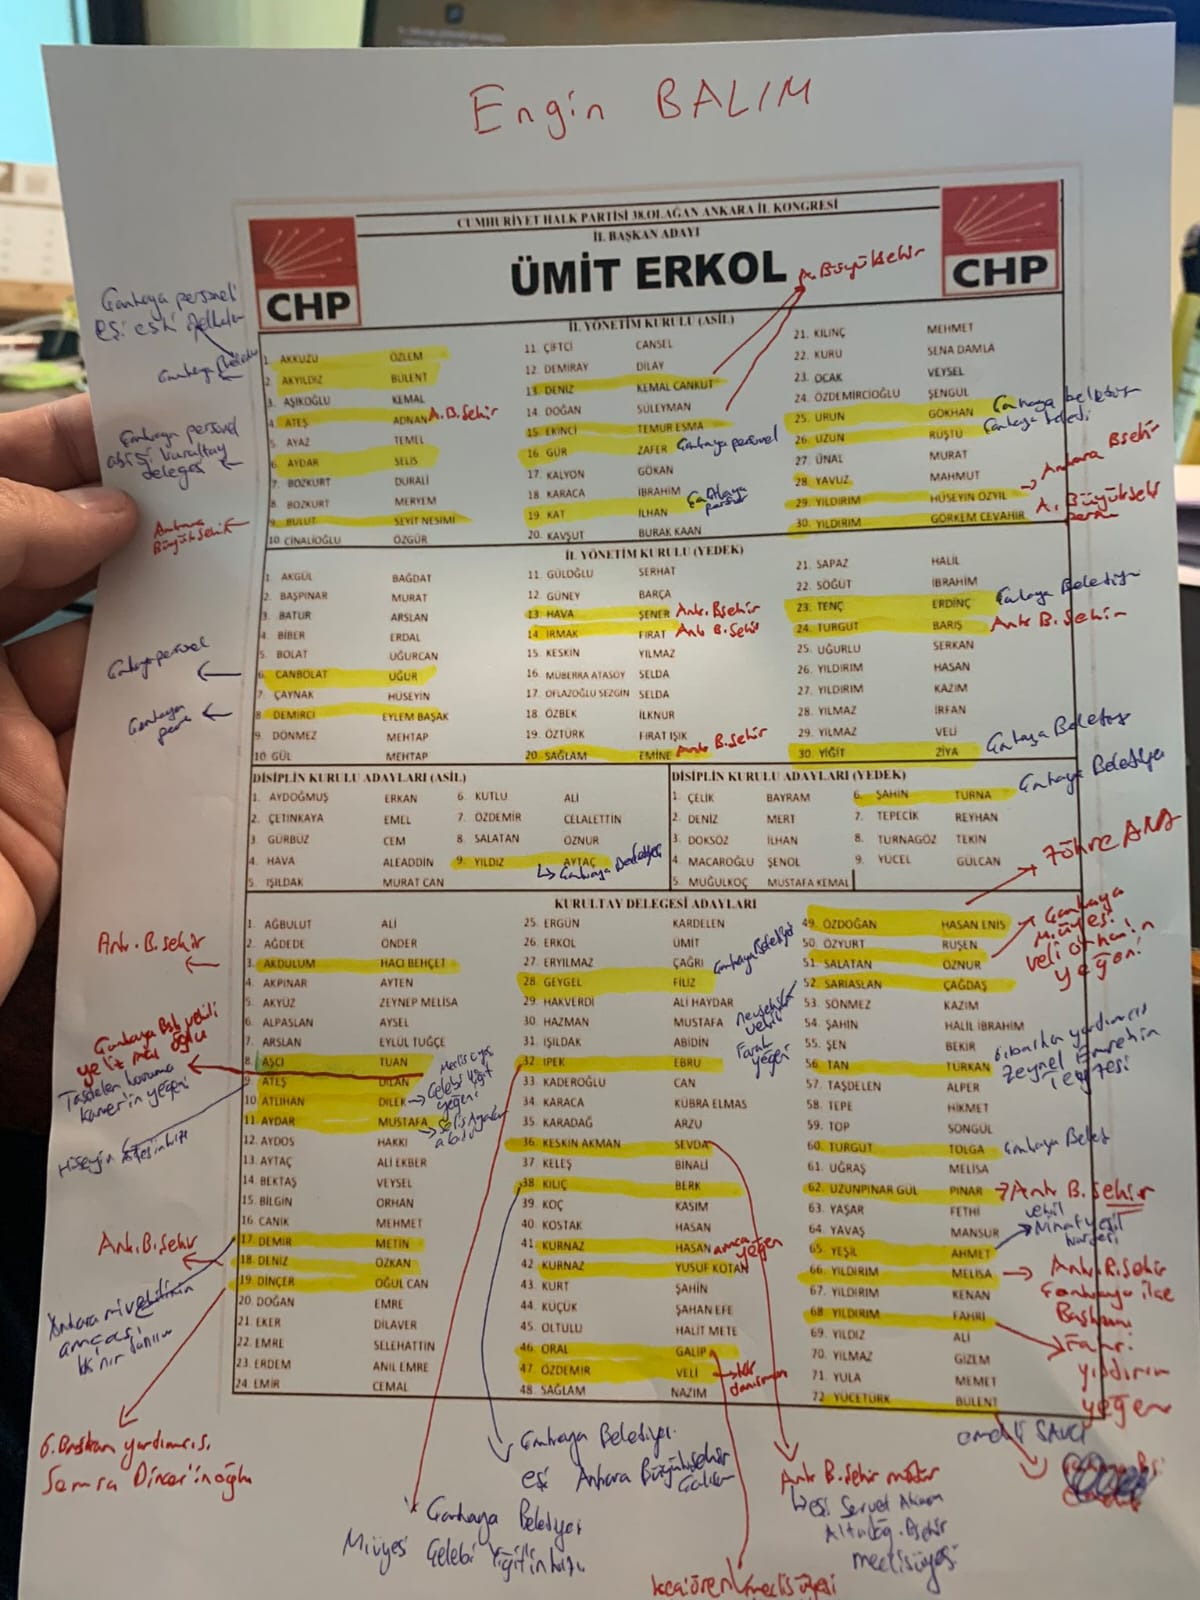 Engin BALIM
CUMHURİYET HALK PARTİSİ 38.OLAĞAN ANKARA İL KONGRESİ
İL BAŞKAN ADAYI
ÜMİT ERKOL
CHP
CHP
A. Büyükşehir
Çankaya personeli
eşi eski
İL YÖNETİM KURULU (ASİL)
1. AKKUZU ÖZLEM
2. AKYILDIZ BÜLENT
3. AŞIKOĞLU KEMAL
4. ATEŞ ADNAN A.B.Şehir
5. AYAZ TEMEL
6. AYDAR SELİS
7. BOZKURT DURALİ
8. BOZKURT MERYEM
9. BULUT SEYİT NESİMİ
10. CİNALİOĞLU ÖZGÜR
11. ÇİFTCİ CANSEL
12. DEMİRAY DİLAY
13. DENİZ KEMAL CANKUT
14. DOĞAN SÜLEYMAN
15. EKİNCİ TEMUR ESMA
16. GÜR ZAFER Çankaya personel
17. KALYON GÖKAN
18. KARACA İBRAHİM
19. KAT İLHAN Çankaya
20. KAVŞUT BURAK KAAN
21. KILINÇ MEHMET
22. KURU SENA DAMLA
23. OCAK VEYSEL
24. ÖZDEMİRCİOĞLU ŞENGÜL
25. URUN GÖKHAN Çankaya belediye
26. UZUN RÜŞTÜ Çankaya
27. ÜNAL MURAT
28. YAVUZ MAHMUT
29. YILDIRIM HÜSEYİN ÖZYIL Ankara Bşehir
30. YILDIRIM GÖRKEM CEVAHİR A. Büyükşehir
Çankaya personel
abisi kurultay
delegesi
Ankara
Büyükşehir
İL YÖNETİM KURULU (YEDEK)
1. AKGÜL BAĞDAT
2. BAŞPINAR MURAT
3. BATUR ARSLAN
4. BİBER ERDAL
5. BOLAT UĞURCAN
6. CANBOLAT UĞUR
7. ÇAYNAK HÜSEYİN
8. DEMİRCİ EYLEM BAŞAK
9. DÖNMEZ MEHTAP
10. GÜL MEHTAP
11. GÜLOĞLU SERHAT
12. GÜNEY BARÇA
13. HAVA ŞENER Ank. Bşehir
14. IRMAK FIRAT Ank B.Şehir
15. KESKİN YILMAZ
16. MÜBERRA ATASOY SELDA
17. OFLAZOĞLU SEZGİN SELDA
18. ÖZBEK İLKNUR
19. ÖZTÜRK FIRAT IŞIK
20. SAĞLAM EMİNE Ank B.Şehir
21. SAPAZ HALİL
22. SÖĞÜT İBRAHİM
23. TENÇ ERDİNÇ Çankaya Belediye
24. TURGUT BARIŞ Ank B.Şehir
25. UĞURLU SERKAN
26. YILDIRIM HASAN
27. YILDIRIM KAZIM
28. YILMAZ İRFAN
29. YILMAZ VELİ
30. YİĞİT ZİYA Çankaya Belediye
Çankaya personel
Çankaya
DİSİPLİN KURULU ADAYLARI (ASİL)
1. AYDOĞMUŞ ERKAN
2. ÇETİNKAYA EMEL
3. GÜRBÜZ CEM
4. HAVA ALEADDİN
5. IŞILDAK MURAT CAN
6. KUTLU ALİ
7. ÖZDEMİR CELALETTİN
8. SALATAN ÖZNUR
9. YILDIZ AYTAÇ
Çankaya Belediye
DİSİPLİN KURULU ADAYLARI (YEDEK)
1. ÇELİK BAYRAM
2. DENİZ MERT
3. DOKSÖZ İLHAN
4. MACAROĞLU ŞENOL
5. MUĞULKOÇ MUSTAFA KEMAL
6. ŞAHİN TURNA Çankaya Belediye
7. TEPECİK REYHAN
8. TURNAGÖZ TEKİN
9. YÜCEL GÜLCAN
KURULTAY DELEGESİ ADAYLARI
1. AĞBULUT ALİ
2. AĞDEDE ÖNDER
3. AKDULUM HACI BEHÇET
4. AKPINAR AYTEN
5. AKYÜZ ZEYNEP MELİSA
6. ALPASLAN AYSEL
7. ARSLAN EYLÜL TUĞÇE
8. AŞCI TUAN
9. ATEŞ DİLAN
10. ATLIHAN DİLEK
11. AYDAR MUSTAFA
12. AYDOS HAKKI
13. AYTAÇ ALİ EKBER
14. BEKTAŞ VEYSEL
15. BİLGİN ORHAN
16. CANİK MEHMET
17. DEMİR METİN
18. DENİZ ÖZKAN
19. DİNÇER OĞUL CAN
20. DOĞAN EMRE
21. EKER DİLAVER
22. EMRE SELEHATTİN
23. ERDEM ANIL EMRE
24. EMİR CEMAL
25. ERGÜN KARDELEN
26. ERKOL ÜMİT
27. ERYILMAZ ÇAĞRI
28. GEYGEL FİLİZ Çankaya Belediye
29. HAKVERDİ ALİ HAYDAR
30. HAZMAN MUSTAFA
31. IŞILDAK ABİDİN
32. İPEK EBRU
33. KADEROĞLU CAN
34. KARACA KÜBRA ELMAS
35. KARADAĞ ARZU
36. KESKİN AKMAN SEVDA
37. KELEŞ BİNALİ
38. KILIÇ BERK
39. KOÇ KASIM
40. KOSTAK HASAN
41. KURNAZ HASAN amca
42. KURNAZ YUSUF KOTAN yeğen
43. KURT ŞAHİN
44. KÜÇÜK ŞAHAN EFE
45. OLTULU HALİT METE
46. ORAL GALİP
47. ÖZDEMİR VELİ danışman
48. SAĞLAM NAZIM
49. ÖZDOĞAN HASAN ENİS
50. ÖZYURT RUŞEN
51. SALATAN ÖZNUR
52. SARIASLAN ÇAĞDAŞ
53. SÖNMEZ KAZIM
54. ŞAHİN HALİL İBRAHİM
55. ŞEN BEKİR
56. TAN TÜRKAN
57. TAŞDELEN ALPER
58. TEPE HİKMET
59. TOP SONGÜL
60. TURGUT TOLGA Çankaya
61. UĞRAŞ MELİSA
62. UZUNPINAR GÜL PINAR Ank B.Şehir
63. YAŞAR FETHİ
64. YAVAŞ MANSUR
65. YEŞİL AHMET
66. YILDIRIM MELİSA Ank. B.Şehir
67. YILDIRIM KENAN
68. YILDIRIM FAHRİ
69. YILDIZ ALİ
70. YILMAZ GİZEM
71. YULA MEMET
72. YÜCETÜRK BÜLENT
ZÖHRE ANA
Çankaya
M. üyesi
Veli Orhan'ın
yeğeni
Nevşehir
vekili
Faruk
yeğeni
G.başkan yardımcısı
Zeynel Emre'nin
vekil
Nihat Yeşil
kardeşi
Çankaya ilçe
Başkanı
Fahri
Yıldırım
yeğen
emekli SAVCI
Ank. B.Şehir
Taşdelen koruma
Kamer'in yeğeni
Çelebi Yiğit
yeğeni
Ank. B.Şehir
Ankara milvekilinin
amcası
G. Başkan yardımcısı
Semra Dinçer'in oğlu
Çankaya Belediyesi
eşi Ankara Büyükşehir
Çankaya Belediyesi
M.üyesi Çelebi Yiğit'in kızı
Ank B.Şehir
Altındağ, Bşehir
meclis üyesi
Keçiören meclis üyesi